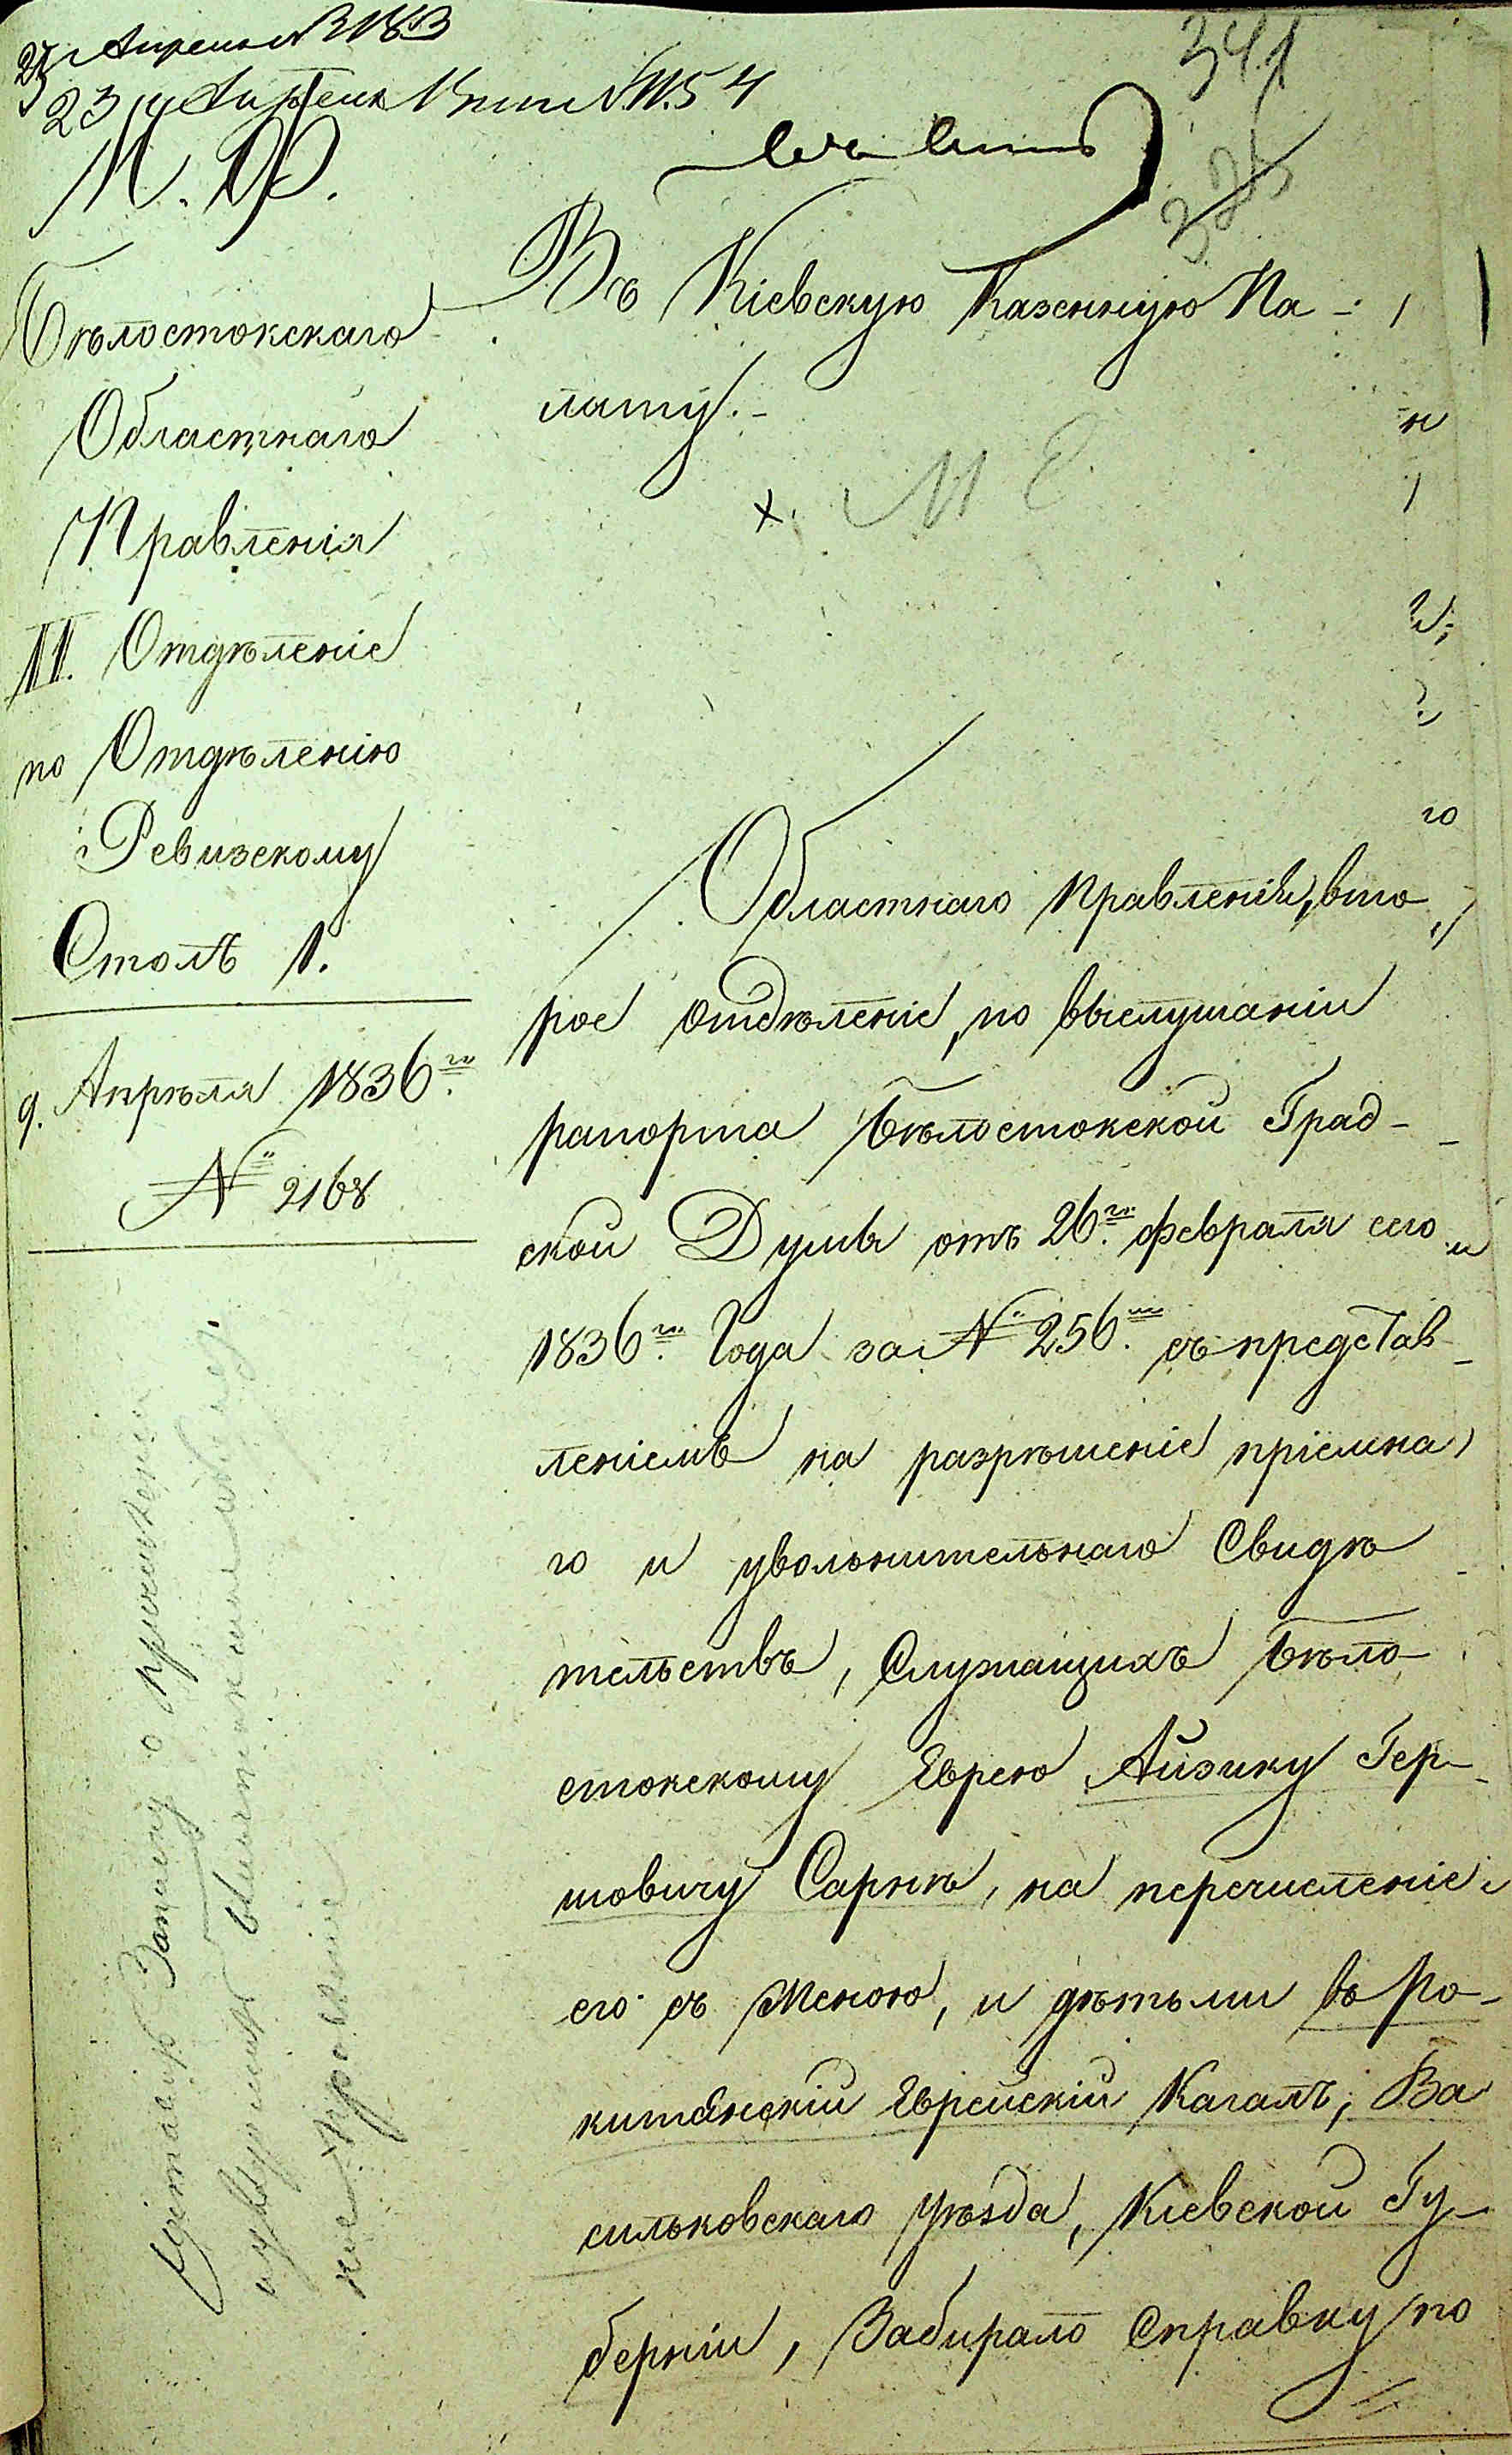 341
23 Апреля
М. Ф.
Бѣлостокскаго
Областнаго
Правленія
II. Отдѣленіе
по Отдѣленію
Ревизскому
Столъ 1.
9. Апрѣля 1836го.
№ 2168
Въ Кіевскую Казенную Па-
лату.-
Областнаго Правленія, вто
рое отдѣленіе, по выслушаніи
рапорта Бѣлостокской Град-
ской Думы отъ 26го. февраля сего
1836го. Года за № 256. съ представ-
леніемъ на разрѣшеніе пріемна
го и увольнительнаго Свидѣ
тельствъ, Служащихъ Бѣло-
стокскому Еврею Айзику Гер-
шовичу Сарнѣ, на перечисленіе
его съ Женою, и дѣтьми въ Ро-
китянскій Еврейскій Кагалъ, Ва
сильковскаго уѣзда, Кіевской Гу-
берніи, Забирало Справку по